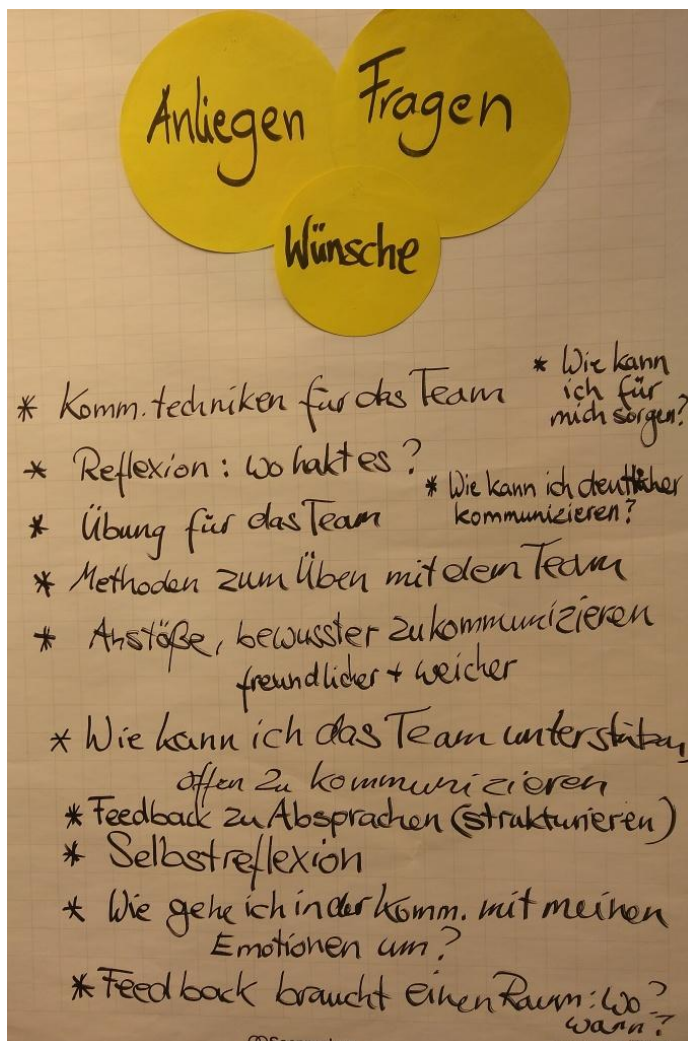 Anliegen
Fragen
Wünsche
* Komm.techniken für das Team
* Wie kann
ich für
mich sorgen?
* Reflexion: wo hakt es?
* Wie kann ich deutlicher
kommunizieren?
* Übung für das Team
* Methoden zum Üben mit dem Team
* Anstöße, bewusster zu kommunizieren
freundlicher + weicher
* Wie kann ich das Team unterstützen,
offen zu kommunizieren
* Feedback zu Absprachen (strukturieren)
* Selbstreflexion
* Wie gehe ich in der Komm. mit meinen
Emotionen um?
* Feedback braucht einen Raum: wo?
wann?